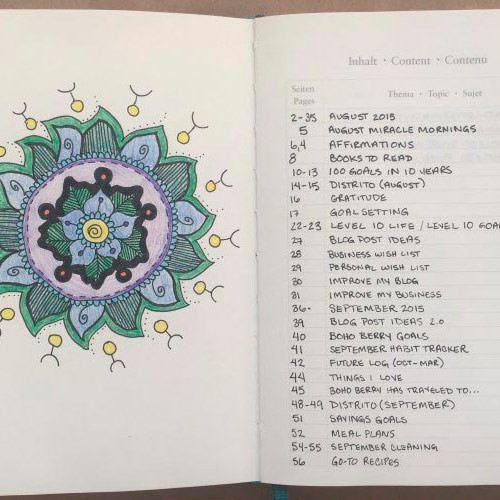 Inhalt • Content • Contenu
Seiten
Pages
Thema • Topic • Sujet
2-35 AUGUST 2015
5 AUGUST MIRACLE MORNINGS
6,4 AFFIRMATIONS
8 BOOKS TO READ
10-13 100 GOALS IN 10 YEARS
14-15 DISTRITO (AUGUST)
16 GRATITUDE
17 GOAL SETTING
22-23 LEVEL 10 LIFE / LEVEL 10 GOAL
27 BLOG POST IDEAS
28 BUSINESS WISH LIST
29 PERSONAL WISH LIST
30 IMPROVE MY BLOG
31 IMPROVE MY BUSINESS
36- SEPTEMBER 2015
39 BLOG POST IDEAS 2.0
40 BOHO BERRY GOALS
41 SEPTEMBER HABIT TRACKER
42 FUTURE LOG (OCT-MAR)
44 THINGS I LOVE
45 BOHO BERRY HAS TRAVELED TO...
48-49 DISTRITO (SEPTEMBER)
51 SAVINGS GOALS
52 MEAL PLANS
54-55 SEPTEMBER CLEANING
56 GO-TO RECIPES